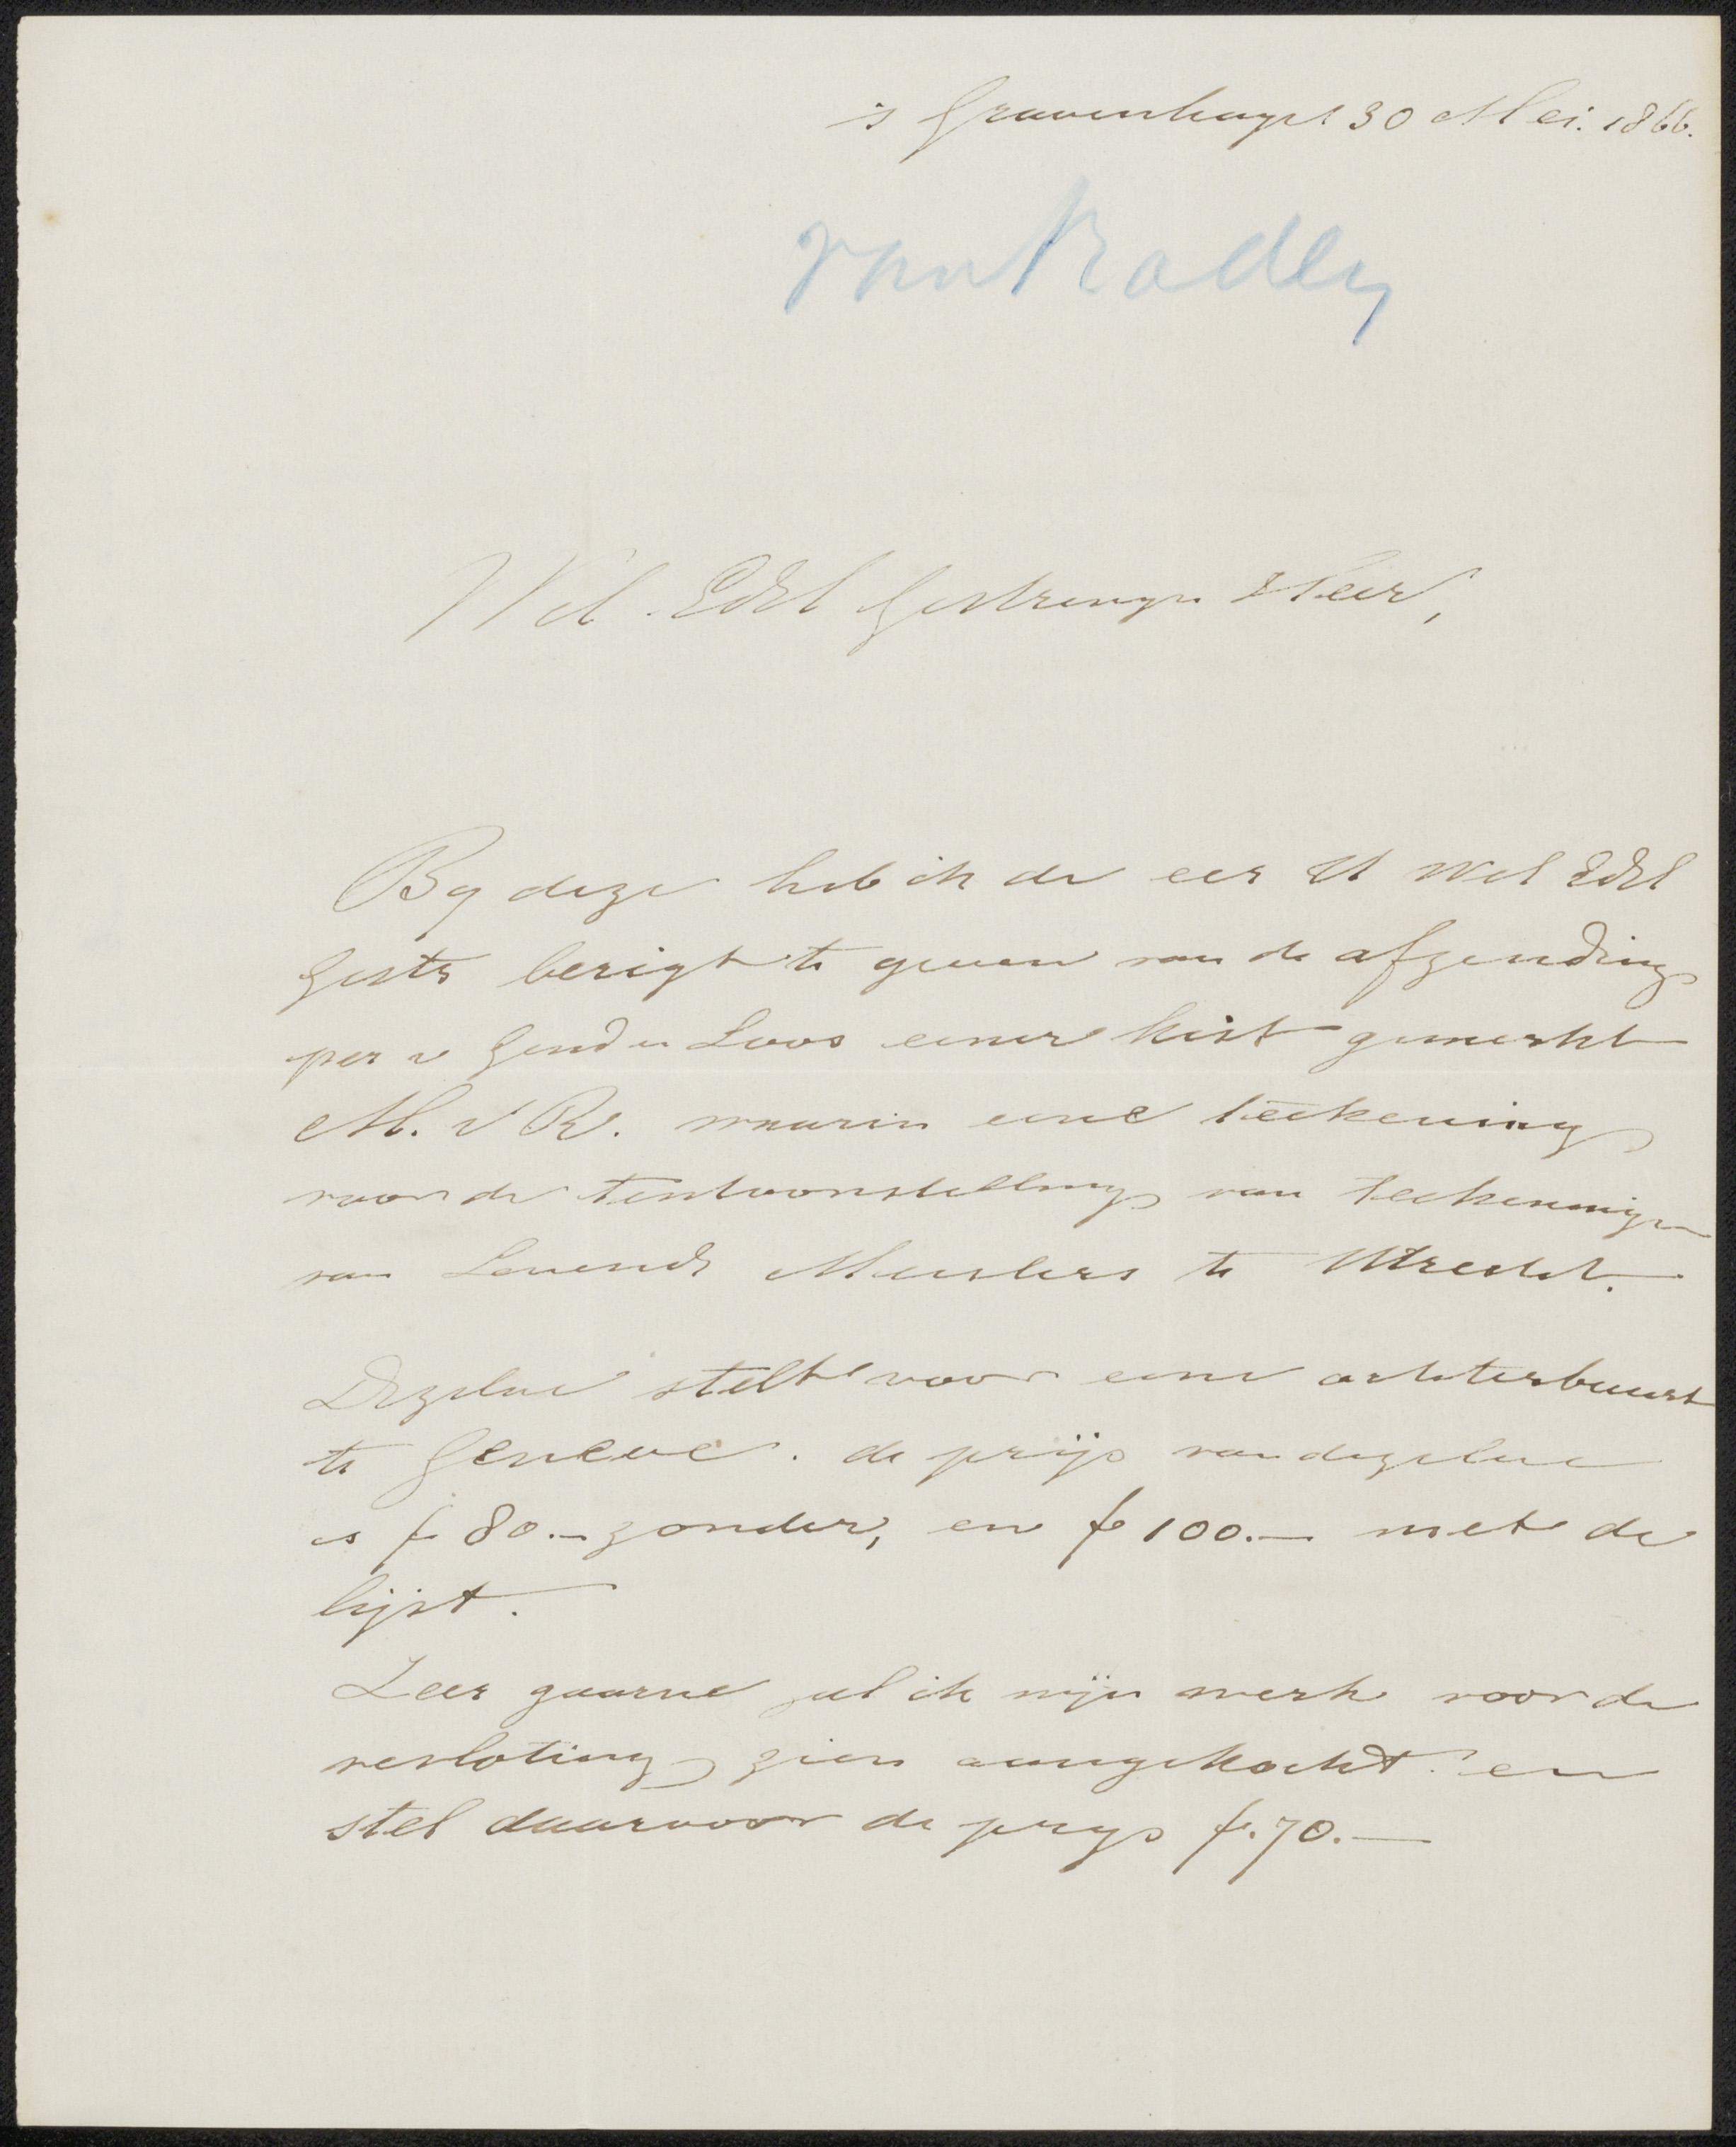 's Gravenhage 30 Mei. 1866.
van Raden
Wel Edel Gestrenge Heer,
By deze heb ik de eer U Wel Edel
Gestr berigt te geven van de afzending
per v Gend en Loos eener kist gemerkt
M. v R. waarin eene teekening
voor de tentoonstelling van teekeningen
van Levende Meesters te Utrecht.
Dezelve stelt voor eene achterbuurt
te Geneve. de prijs van dezelve
is f 80.- zonder, en f 100.- met de
lijst.
Zeer gaarne zal ik mijn werk voor de
verloting zien aangekocht en
stel daarvoor de prys f. 70.-